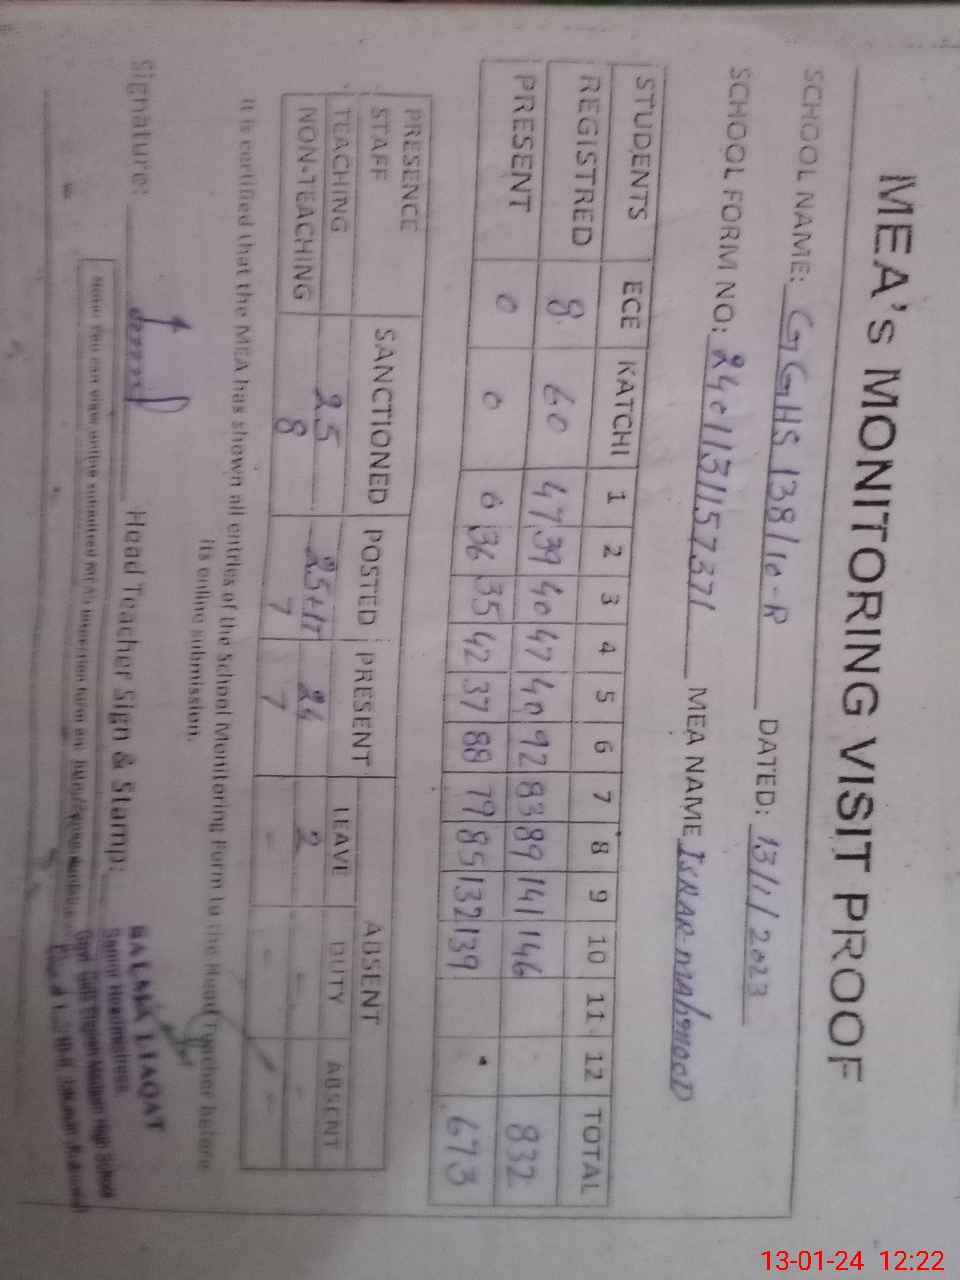 MEA's MONITORING VISIT PROOF
SCHOOL NAME: GGHS 138/10-R DATED: 13/1/2023
SCHOOL FORM NO: 2401131157371 MEA NAME ISRAR-MAHMOOD
STUDENTS ECE KATCHI 1 2 3 4 5 6 7 8 9 10 11 12 TOTAL
REGISTRED 8 60 47 39 40 47 40 92 83 89 141 146 832
PRESENT 0 0 0 36 35 42 37 88 79 85 132 139 673
PRESENCE SANCTIONED POSTED PRESENT ABSENT
STAFF LEAVE DUTY ABSENT
TEACHING 25 25+1T 24 2 - -
NON-TEACHING 8 7 7 - - -
It is certified that the MEA has shown all entries of the School Monitoring Form to the Head Teacher before
its online submission.
Signature: Head Teacher Sign & Stamp:
SALMA LIAQAT
Senior Headmistress
Note: You can view online submitted
13-01-24 12:22